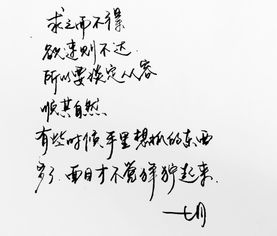 求之而不得
欲速则不达.
所以要淡定从容
顺其自然
有些时候手里想抓的东西
少了.面目才不会狰狞起来.
—七月